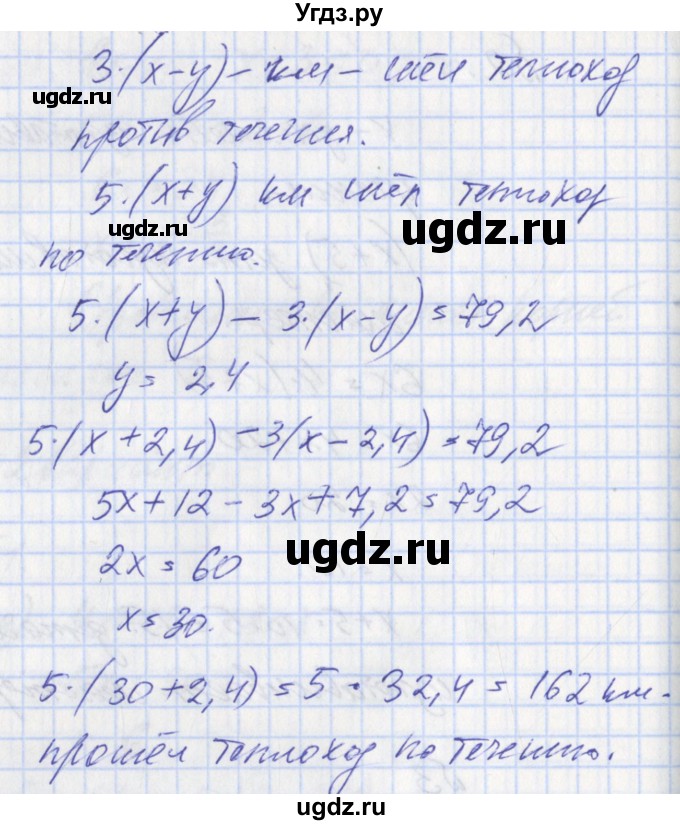 Угдз.ру
3·(x-y) - км - шёл теплоход
ugdz.ru
против течения.
5·(x+y) км шёл теплоход
ugdz.ru
ugdz.ru
по течению.
5·(x+y) - 3·(x-y) = 79,2
y = 2,4
5·(x+2,4) - 3(x-2,4) = 79,2
5x+12 - 3x+7,2 = 79,2
ugdz.ru
2x = 60
x = 30.
5·(30+2,4) = 5·32,4 = 162 км -
прошёл теплоход по течению.
ugdz.ru